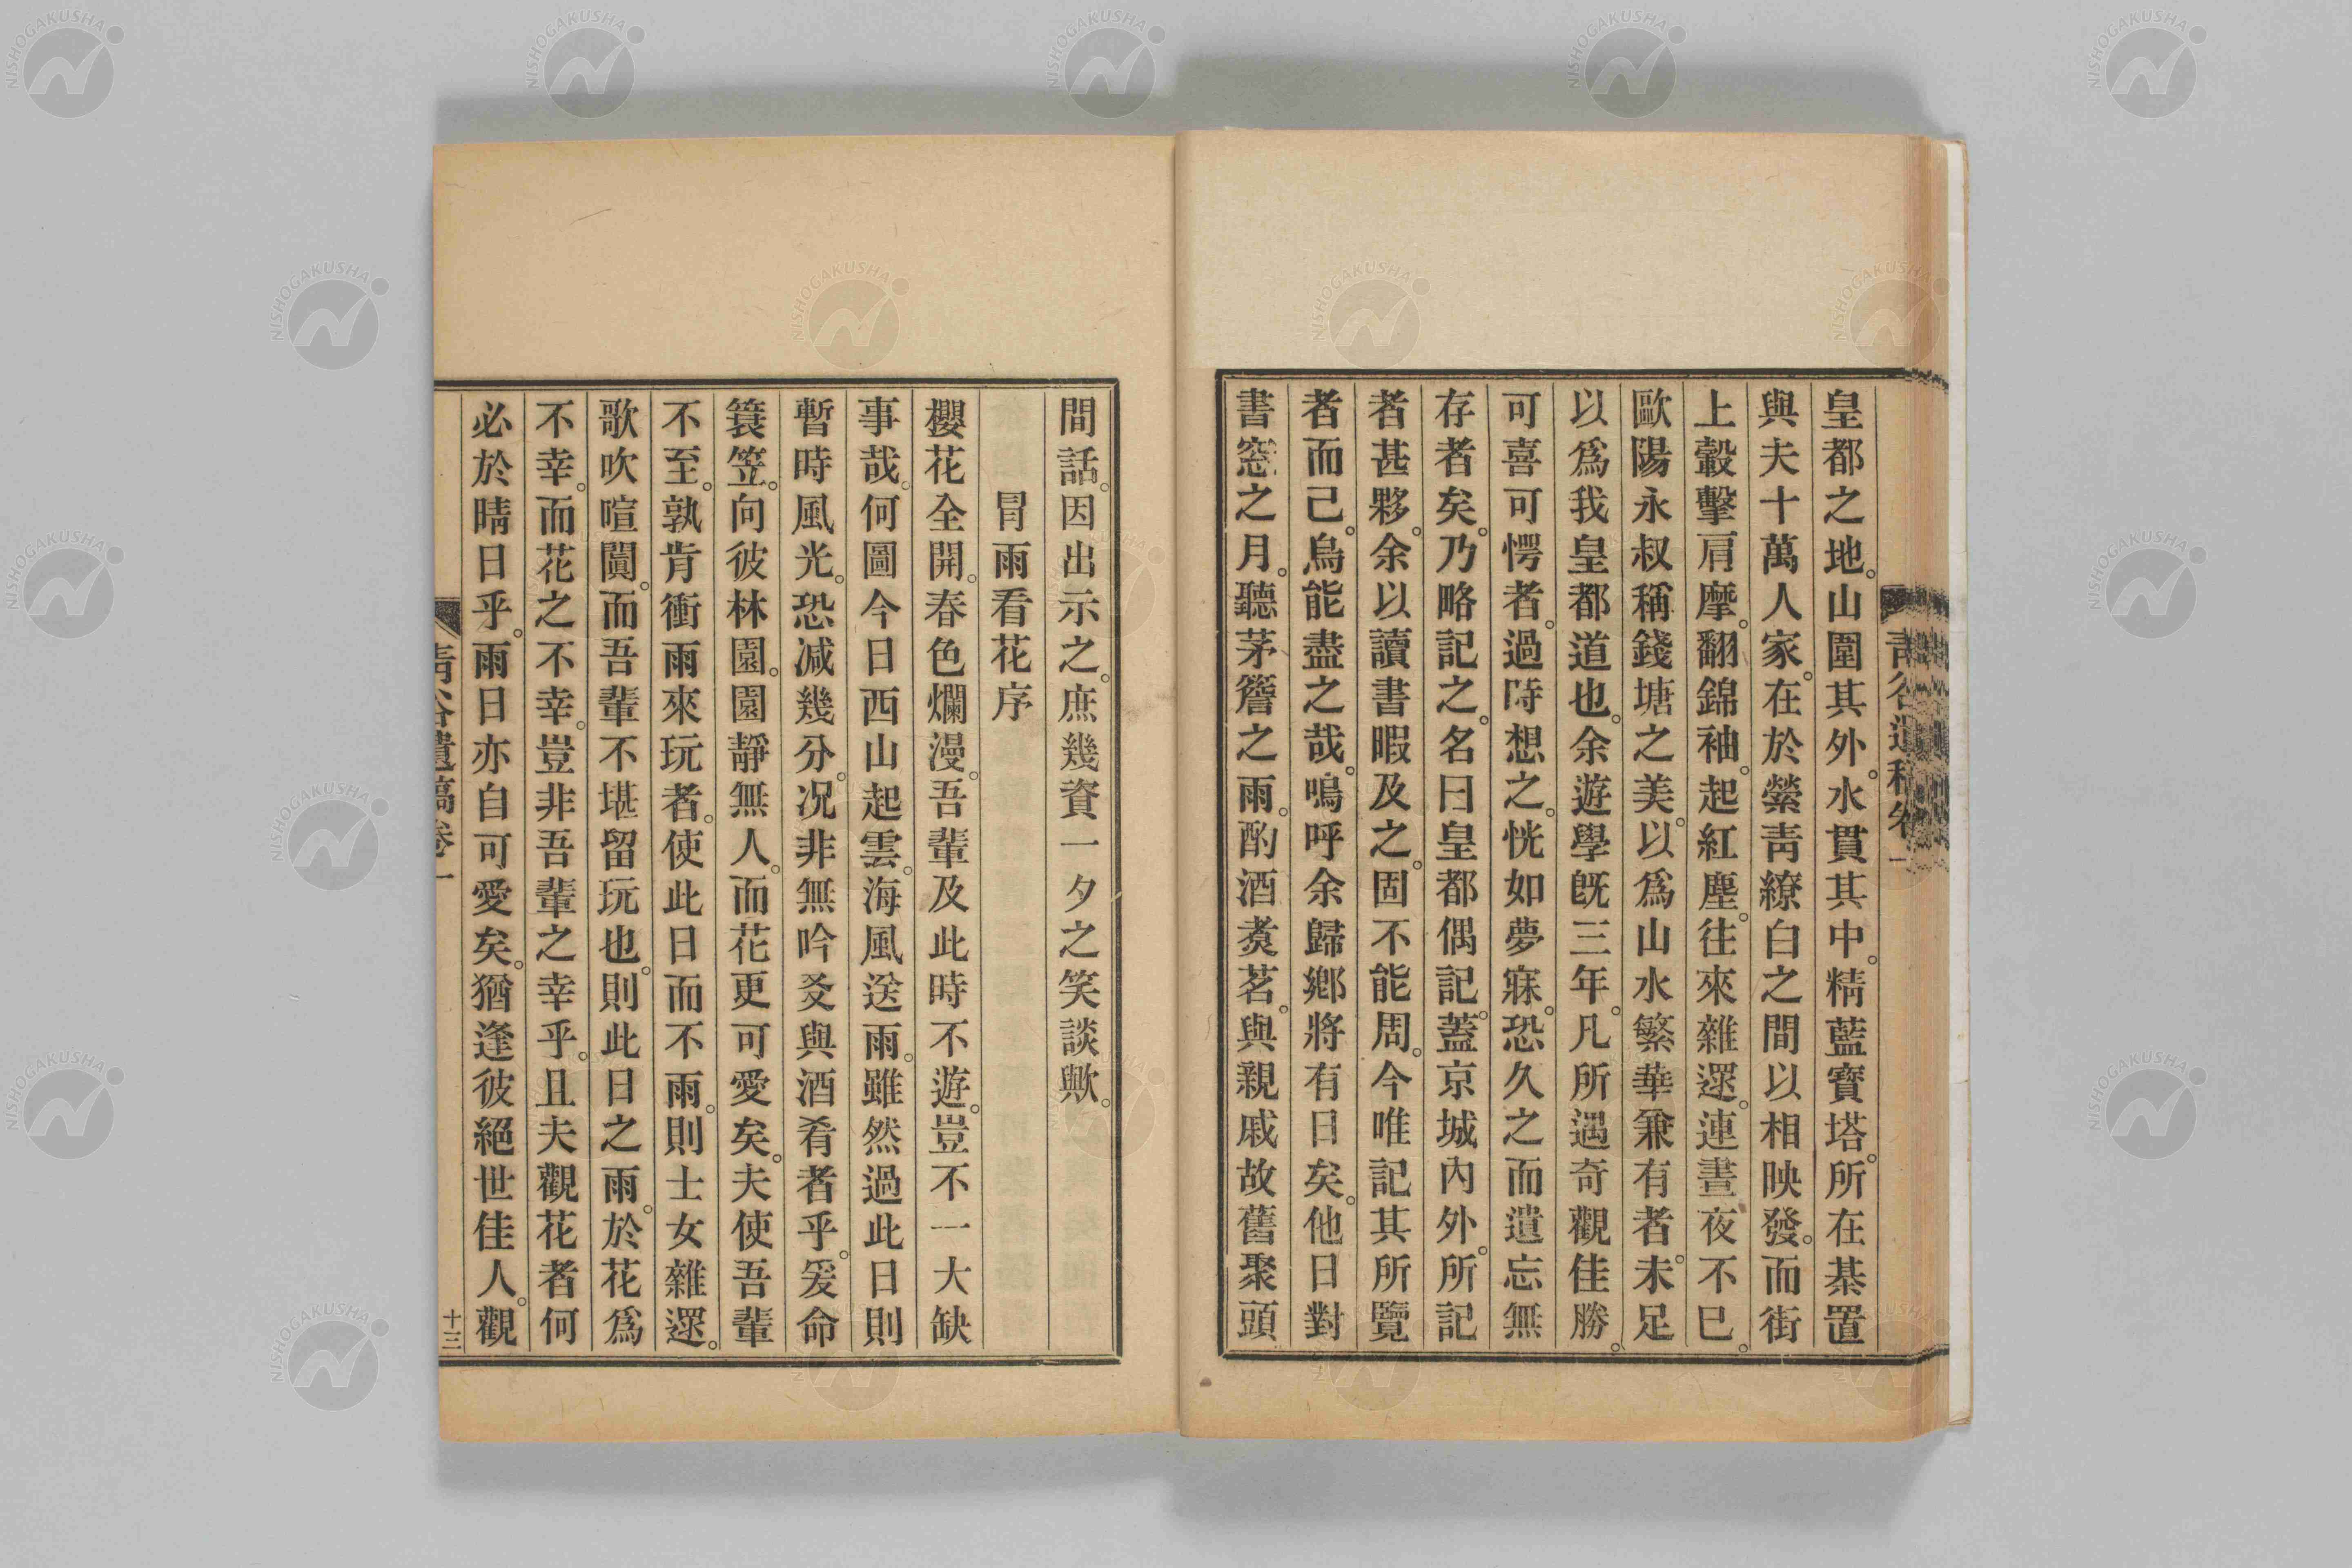 皇都之地。山圍其外。水貫其中。精藍寶塔。所在棊置
與夫十萬人家。在於縈靑繚白之間以相映發。而街
上轂擊肩摩。翻錦袖。起紅塵。往來雜遝。連晝夜不已。
歐陽永叔稱錢塘之美。以爲山水繁華兼有者。未足
以爲我皇都道也。余遊學旣三年。凡所遇奇觀佳勝。
可喜可愕者。過時想之。恍如夢寐。恐久之而遺忘無
存者矣。乃略記之。名曰皇都偶記。蓋京城內外。所記
者甚夥。余以讀書暇及之。固不能周。今唯記其所覽
者而己。烏能盡之哉。嗚呼余歸鄉將有日矣。他日對
書窓之月。聽茅簷之雨。酌酒煑茗。與親戚故舊聚頭
間話。因出示之。庶幾資一夕之笑談歟。
冒雨看花序
櫻花全開。春色爛漫。吾輩及此時不遊。豈不一大缺
事哉。何圖今日西山起雲。海風送雨。雖然過此日則
暫時風光。恐減幾分。况非無吟爻與酒肴者乎。爰命
簑笠。向彼林園。園靜無人。而花更可愛矣。夫使吾輩
不至。孰肯衝雨來玩者。使此日而不雨。則士女雜遝。
歌吹喧闐。而吾輩不堪留玩也。則此日之雨。於花爲
不幸。而花之不幸。豈非吾輩之幸乎。且夫觀花者何
必於晴日乎。雨日亦自可愛矣。猶逢彼絕世佳人。觀
靑谷遺稿卷一
十三
NISHOGAKUSHA